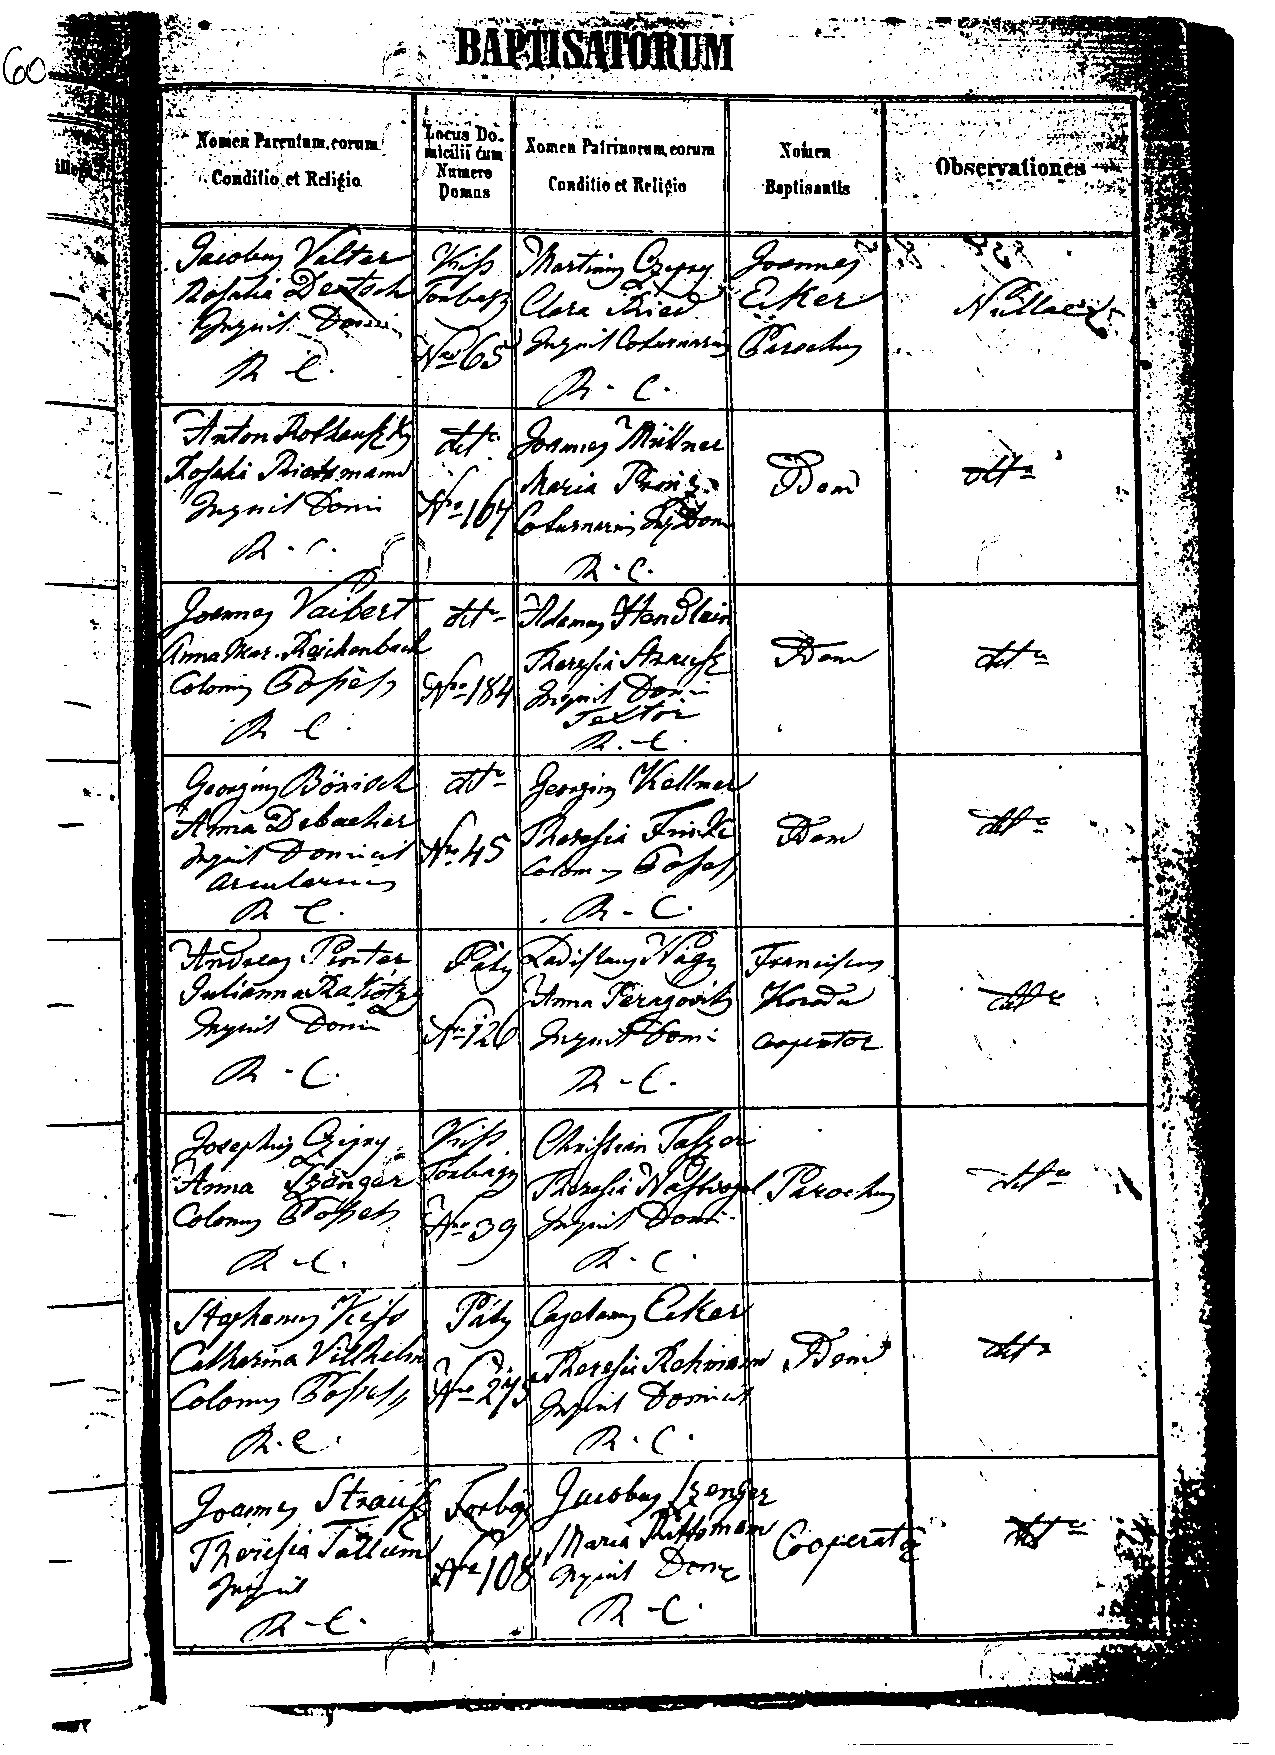 60
BAPTISATORUM
Nomen Parentum, eorum
Conditio et Religio
Locus Do-
micilii cum
Numero
Domus
Nomen Patrinorum, eorum
Conditio et Religio
Nomen
Baptisantis
Observationes
Jacobus Valter
Rosalia Deutsch
Inquil. Domi
R C.
Kiss
Torbagy
Nro 65
Martinus Czigny
Clara Ried
Inquil Coturnarius
R. C.
Joannes
Eiker
Parochus
Nullae
Anton
Rosalia
Inquil Domi
R. C.
dtto
Nro 167
Joannes Müllner
Maria
Coturnarius Inq Dom
R. C.
Idem
dtto
Joannes Vaibert
Anna Mar. Reichenbach
Colonus Possess
R C.
dtto
Nro 184
Adamus
Theresia Strausz
Inquil Domi
Textor
R. C.
Idem
dtto
Georgius Bönisch
Anna Debacher
Inquil Domicil
Arcularius
R C.
dtto
Nro 45
Georgius Kellner
Theresia
Colonus Possess
R. C.
Idem
dtto
Andreas
Julianna Rakotzy
Inquil Domi
R. C.
Páty
Nro 126
Ladislaus Nagy
Anna
Inquil Domi
R. C.
Franciscus
Cooperator
dtto
Josephus Czigny
Anna Szenger
Colonus Possess
R. C.
Kiss
Torbagy
Nro 39
Christian Tafzer
Theresia
Inquil Domi
R. C.
Parochus
dtto
Stephanus Kiss
Catharina Vilhelm
Colonus Possess
R. C.
Páty
Nro 275
Cajetanus Eiker
Theresia Rehmann
Inquil Domicil
R. C.
Idem
dtto
Joannes Strausz
Theresia
Inquil
R. C.
Torbágy
Nro 108
Jacobus Szenger
Maria
Inquil Domi
R. C.
Cooperator
dtto